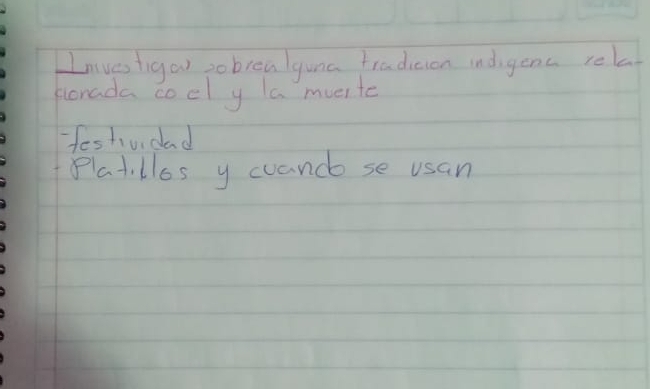 Investigar sobrealguna tradicion indigena rela-
cionada co el y la muerte
-festividad
- Platillos y cuando se usan